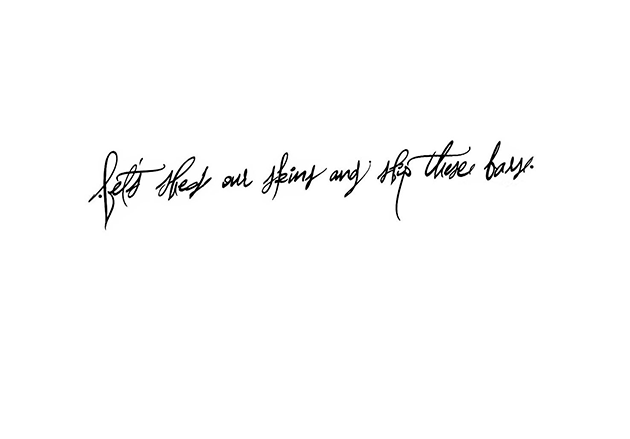 Let's shed our skins and slip these bars.